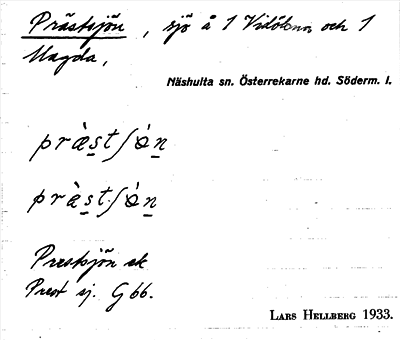 Prästsjön, sjö å 1 Vidökna och 1
Magda,
Näshulta sn. Österrekarne hd. Söderm. l.
præ̀stʃø̀n
præ̀st.ʃø̀n
Prestsjön ek.
Prest sj. G 66.
LARS HELLBERG 1933.